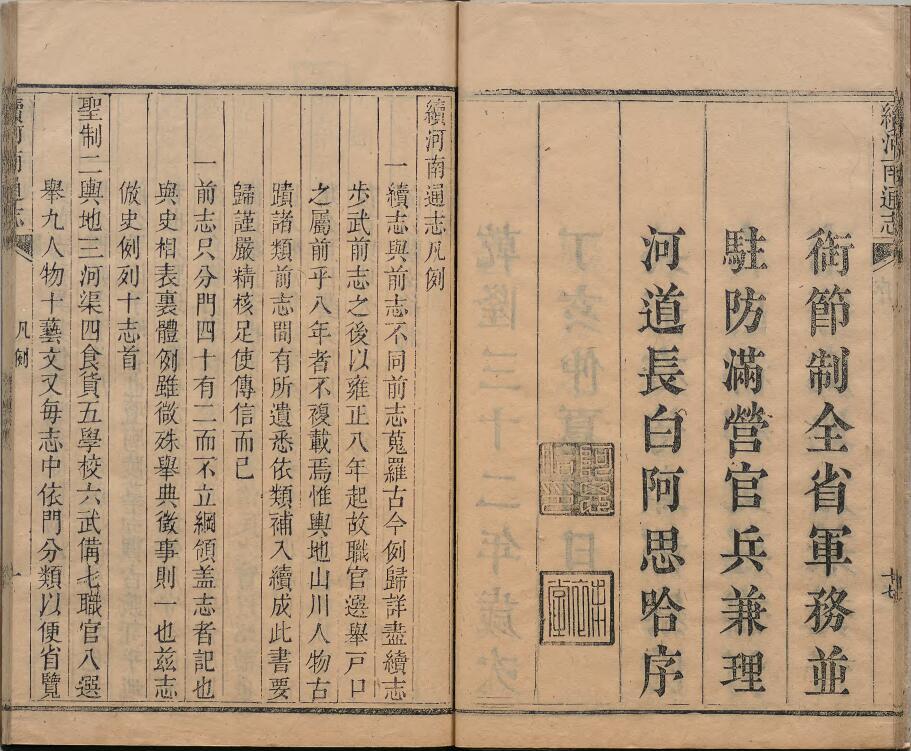 銜節制全省軍務並
駐防滿營官兵兼理
河道長白阿思哈序
續河南通志
十七
續河南通志凡例
一續志與前志不同前志蒐羅古今例歸詳盡續志
步武前志之後以雍正八年起故職官選舉戶口
之屬前乎八年者不複載焉惟輿地山川人物古
蹟諸類前志間有所遺悉依類補入續成此書要
歸謹嚴精核足使傳信而已
一前志只分門四十有二而不立綱領盖志者記也
與史相表裏體例雖微殊舉典徵事則一也茲志
倣史例列十志首
聖制二輿地三河渠四食貨五學校六武備七職官八選
舉九人物十藝文又每志中依門分類以便省覽
續河南通志
凡例
一